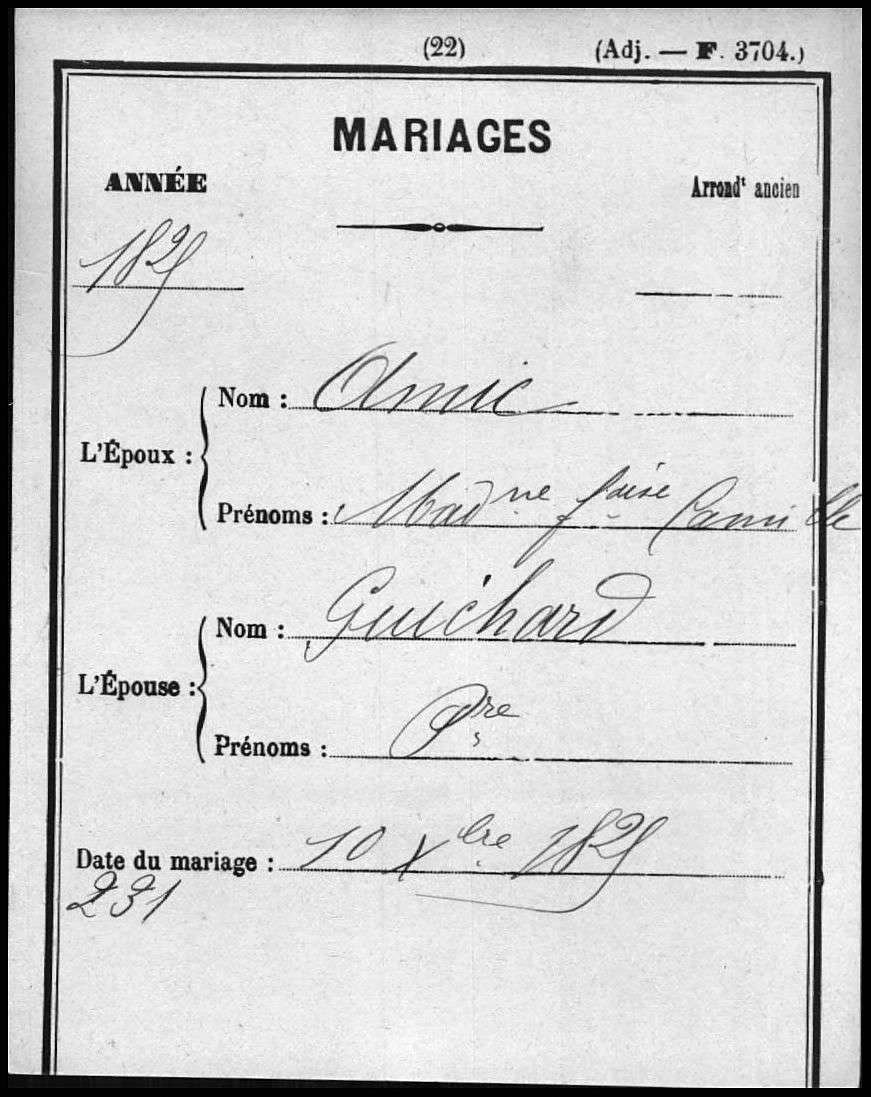 (22) (Adj. — F. 3704.)
MARIAGES
ANNÉE Arrondt ancien
1825
L'Époux :
Nom : Amic
Prénoms : Madne foise Camille
L'Épouse :
Nom : Guichard
Prénoms : Pre
Date du mariage : 10 Xbre 1825
231